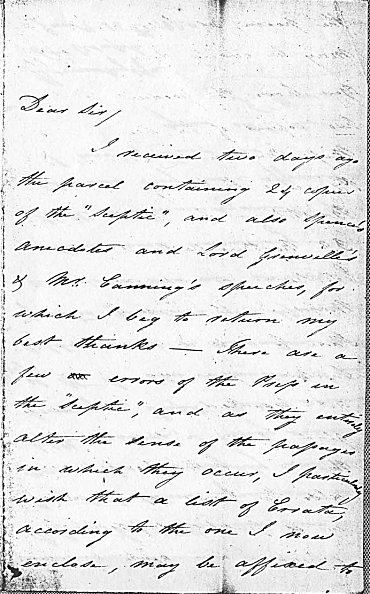 Dear Sir,
I received two days ago
the parcel containing 24 copies
of the "Sceptic", and also Spence's
anecdotes and Lord Grenville's
& Mr. Canning's speeches, for
which I beg to return my
best thanks — There are a
few errors of the Press in
the "Sceptic", and as they entirely
alter the sense of the passages
in which they occur, I particularly
wish that a list of Errata,
according to the one I now
enclose, may be affixed to